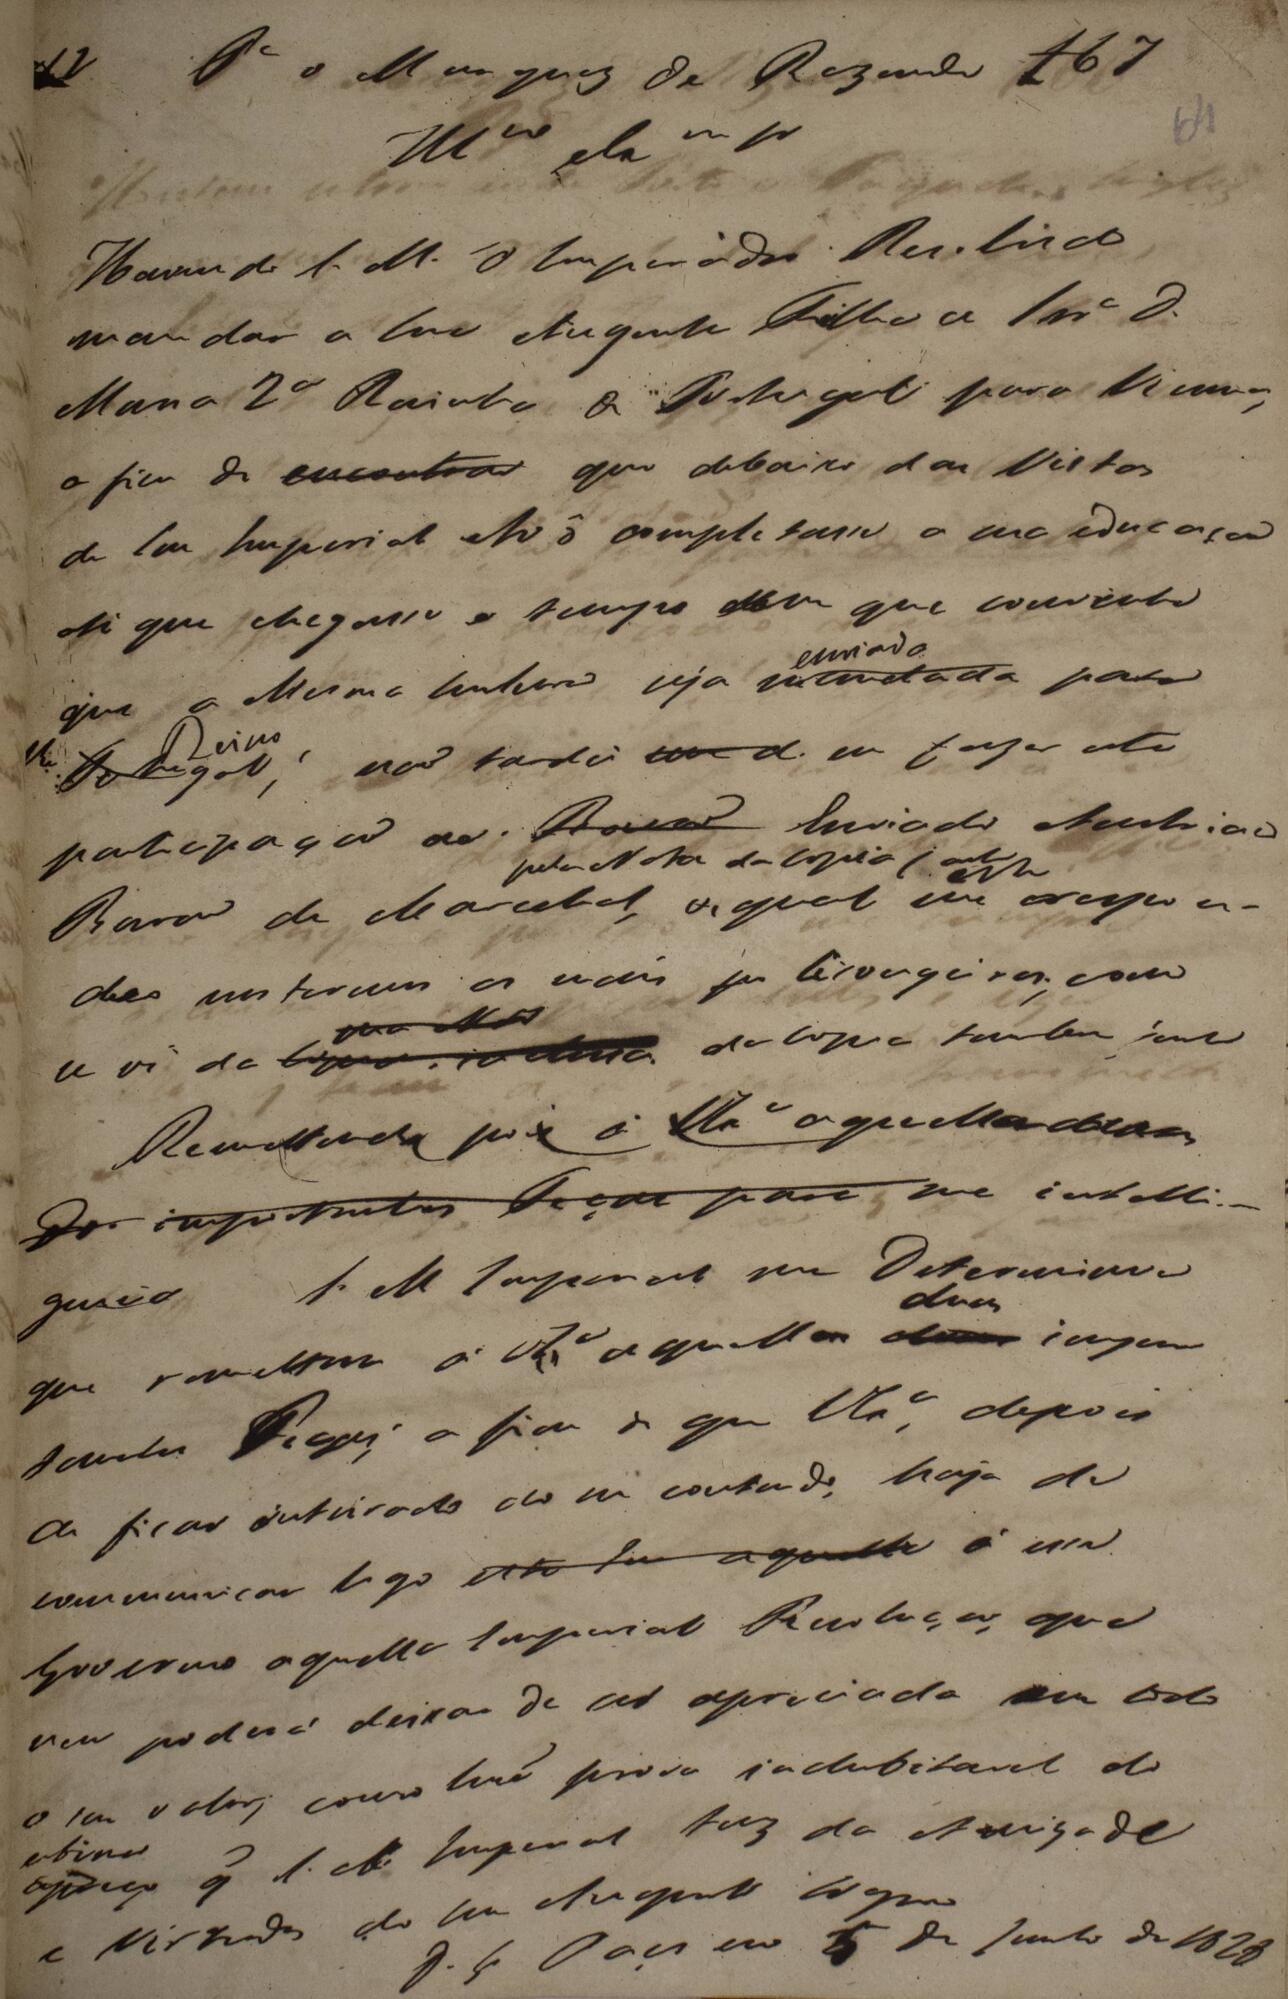 12 Pª o Marquez de Rezende 167
64
Illmo Exmo Sr
Havendo S. M. O Imperador Resolvido
mandar a Sua Augusta Filha a Snrª D.
Maria 2ª Rainha de Portugal para Vienna,
a fim de encontrar que debaixo das Vistas
de Seu Imperial Avô completasse a sua educação
até que chegasse o tempo em que convenha
que a Mesma Senhora seja mandada para
enviada
Portugal, não tardei em fazer esta
Reino
participação ao Barão Enviado Austriaco
pela Nota da Copia junta
Barão de Mareschal, a qual me respon-
este
deo nos termos os mais lisongeiros, como
se vê da Copia inclusa da copia tambem junta
Remettendo pois á VExª aquellas duas
importantes Peças para sua intelli-
gencia S. M. Imperial me Determinou
que remettesse á VExª aquellas duas impor-
duas
tantes Peças, a fim de que VExª, depois
de ficar inteirado do seu contendo, haja de
communicar logo á esse
Governo aquella Imperial Resolução, que
não poderá deixar de ser apreciada em todo
o seu valor, como huã prova indubitavel do
apreço q S. M. Imperial faz da Amizade
e Virtudes do Seu Augusto Sogro
D. G. Paço em 5 de Junho de 1828